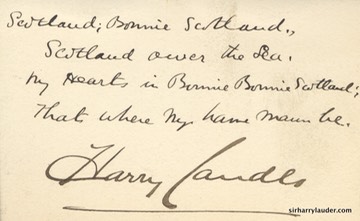 Scotland; Bonnie Scotland.,
Scotland ower the Sea.
My Hearts in Bonnie Bonnie Scotland;
That where My hame maun be.
Harry Lauder
sirharrylauder.com